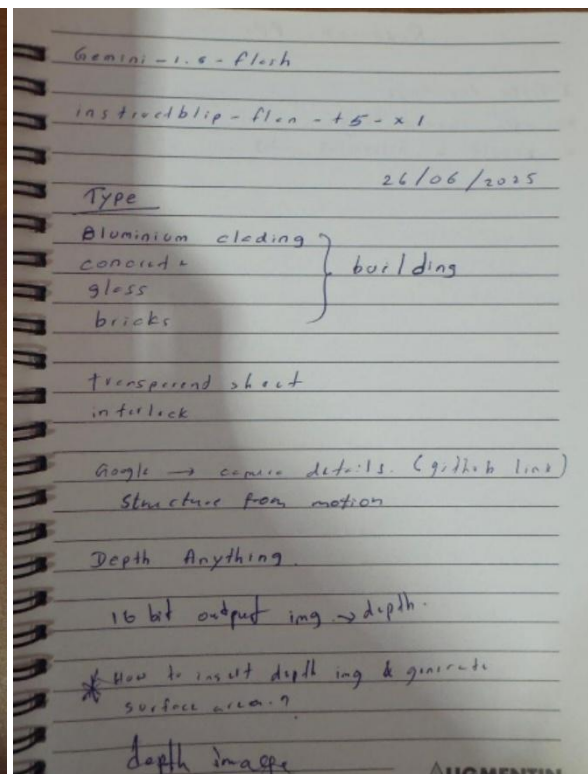 Gemini - 1.5 - flash
instructblip - flan - t5 - xl
26/06/2025
Type
Aluminium clading
concrete
glass
bricks
building
transparend sheet
interlock
Google → camera details. (github link)
structure from motion
Depth Anything.
16 bit output img → depth.
* How to insert depth img & generate
surface area.?
depth image
AUGMENTIN